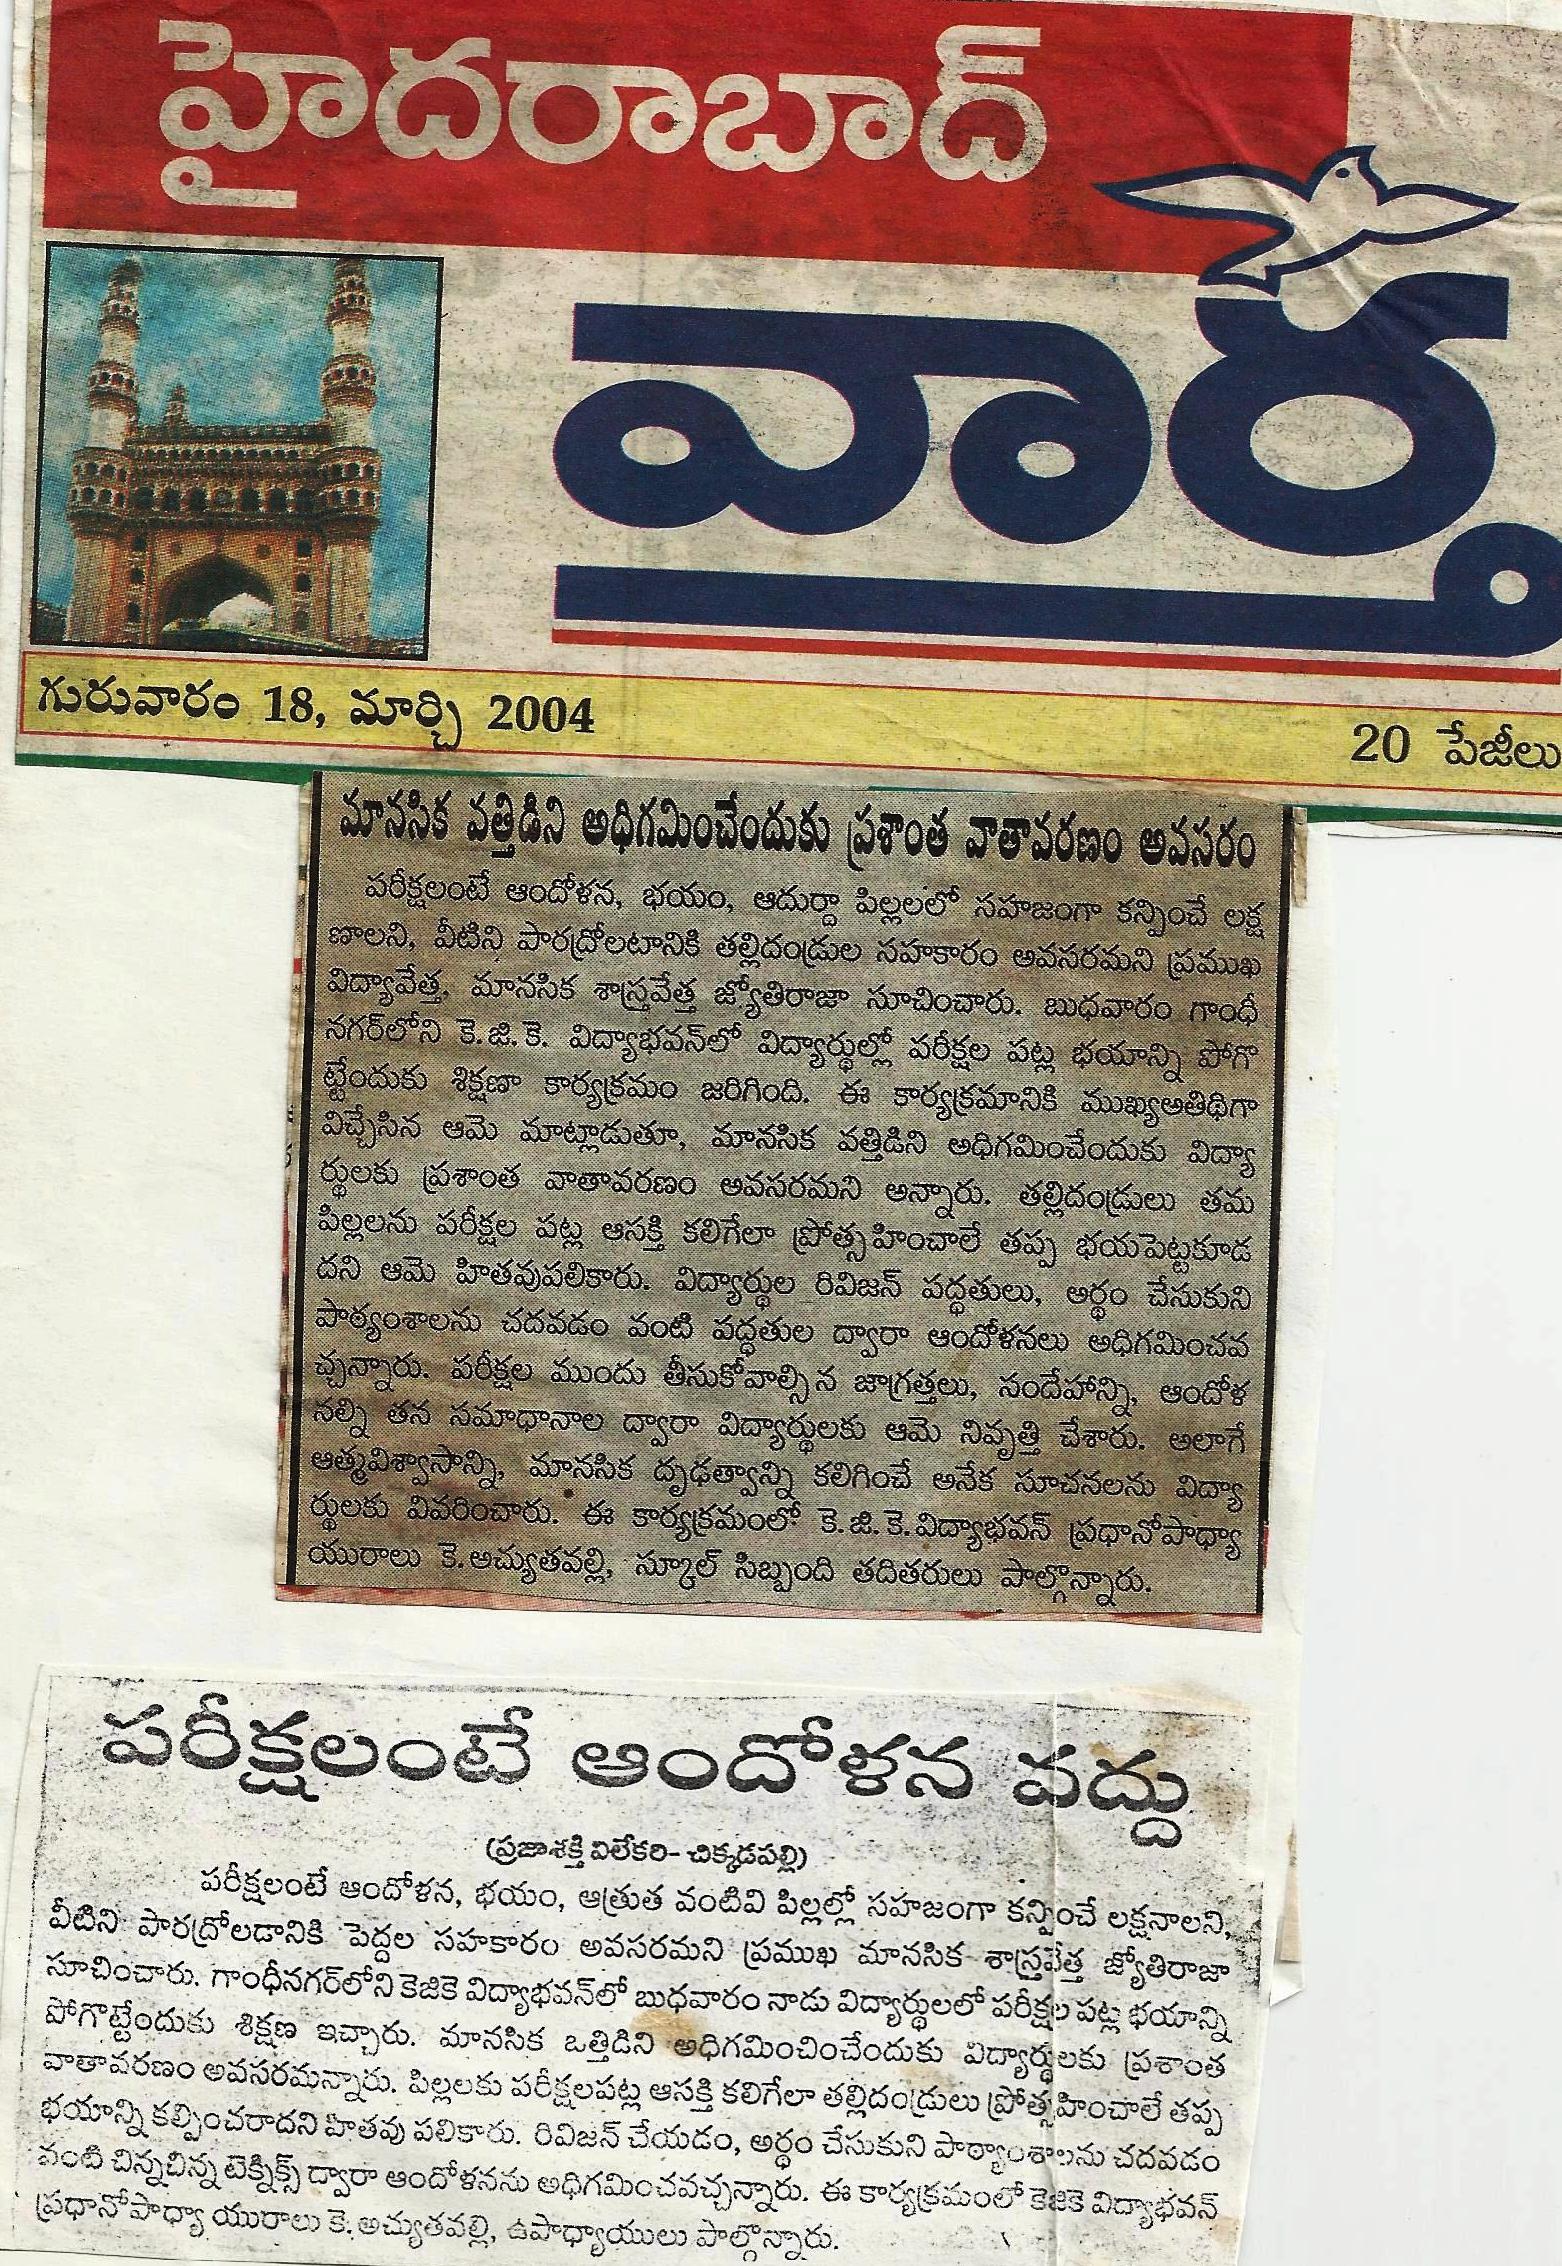 హైదరాబాద్
వార్త
గురువారం 18, మార్చి 2004
20 పేజీలు
మానసిక వత్తిడిని అధిగమించేందుకు ప్రశాంత వాతావరణం అవసరం
పరీక్షలంటే ఆందోళన, భయం, ఆదుర్దా పిల్లలలో సహజంగా కన్పించే లక్ష
ణాలని, వీటిని పారద్రోలటానికి తల్లిదండ్రుల సహకారం అవసరమని ప్రముఖ
విద్యావేత్త, మానసిక శాస్త్రవేత్త జ్యోతిరాజా సూచించారు. బుధవారం గాంధీ
నగర్‌లోని కె.జి.కె. విద్యాభవన్‌లో విద్యార్థుల్లో పరీక్షల పట్ల భయాన్ని పోగొ
ట్టేందుకు శిక్షణా కార్యక్రమం జరిగింది. ఈ కార్యక్రమానికి ముఖ్యఅతిథిగా
విచ్చేసిన ఆమె మాట్లాడుతూ, మానసిక వత్తిడిని అధిగమించేందుకు విద్యా
ర్థులకు ప్రశాంత వాతావరణం అవసరమని అన్నారు. తల్లిదండ్రులు తమ
పిల్లలను పరీక్షల పట్ల ఆసక్తి కలిగేలా ప్రోత్సహించాలే తప్ప భయపెట్టకూడ
దని ఆమె హితవుపలికారు. విద్యార్థుల రివిజన్ పద్ధతులు, అర్థం చేసుకుని
పాఠ్యంశాలను చదవడం వంటి పద్ధతుల ద్వారా ఆందోళనలు అధిగమించవ
చ్చన్నారు. పరీక్షల ముందు తీసుకోవాల్సిన జాగ్రత్తలు, సందేహాన్ని, ఆందోళ
నల్ని తన సమాధానాల ద్వారా విద్యార్థులకు ఆమె నివృత్తి చేశారు. అలాగే
ఆత్మవిశ్వాసాన్ని, మానసిక దృఢత్వాన్ని కలిగించే అనేక సూచనలను విద్యా
ర్థులకు వివరించారు. ఈ కార్యక్రమంలో కె.జి.కె.విద్యాభవన్ ప్రధానోపాధ్యా
యురాలు కె.అచ్యుతవల్లి, స్కూల్ సిబ్బంది తదితరులు పాల్గొన్నారు.
పరీక్షలంటే ఆందోళన వద్దు
(ప్రజాశక్తి విలేకరి- చిక్కడపల్లి)
పరీక్షలంటే ఆందోళన, భయం, ఆత్రుత వంటివి పిల్లల్లో సహజంగా కన్పించే లక్షనాలని,
వీటిని పారద్రోలడానికి పెద్దల సహకారం అవసరమని ప్రముఖ మానసిక శాస్త్రవేత్త జ్యోతిరాజా
సూచించారు. గాంధీనగర్‌లోని కెజికె విద్యాభవన్‌లో బుధవారం నాడు విద్యార్థులలో పరీక్షల పట్ల భయాన్ని
పోగొట్టేందుకు శిక్షణ ఇచ్చారు. మానసిక ఒత్తిడిని అధిగమించించేందుకు విద్యార్థులకు ప్రశాంత
వాతావరణం అవసరమన్నారు. పిల్లలకు పరీక్షలపట్ల ఆసక్తి కలిగేలా తల్లిదండ్రులు ప్రోత్సహించాలే తప్ప
భయాన్ని కల్పించరాదని హితవు పలికారు. రివిజన్ చేయడం, అర్థం చేసుకుని పాఠ్యాంశాలను చదవడం
వంటి చిన్నచిన్న టెక్నిక్స్ ద్వారా ఆందోళనను అధిగమించవచ్చన్నారు. ఈ కార్యక్రమంలో కెజికె విద్యాభవన్
ప్రధానోపాధ్యా యురాలు కె.అచ్యుతవల్లి, ఉపాధ్యాయులు పాల్గొన్నారు.